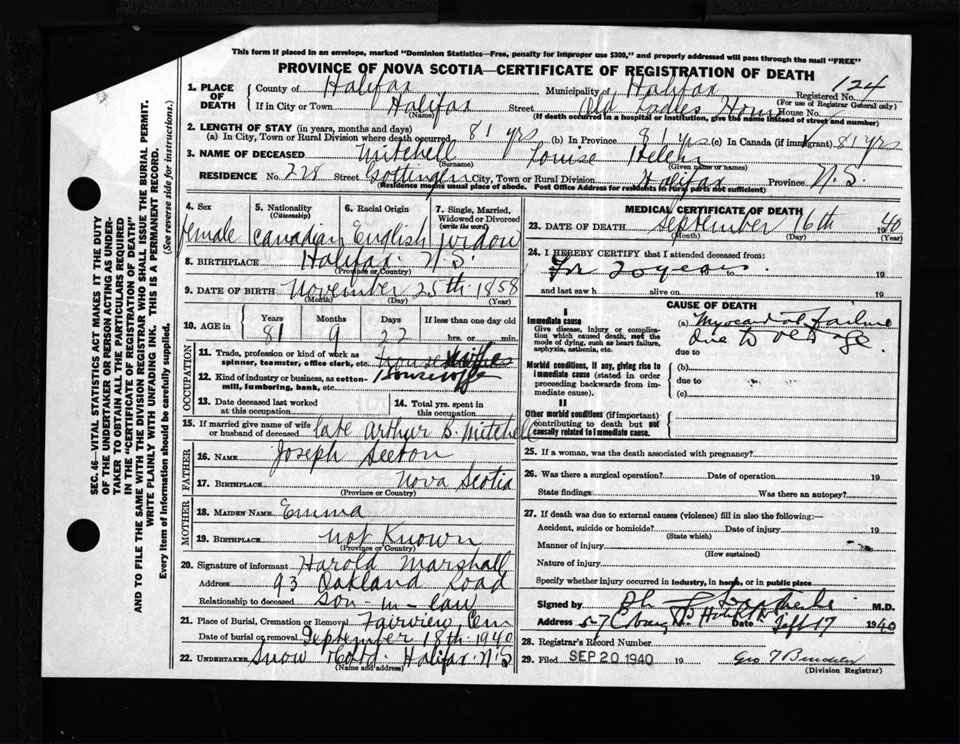 This form if placed in an envelope, marked "Dominion Statistics—Free, penalty for improper use $300," and properly addressed will pass through the mail "FREE"
PROVINCE OF NOVA SCOTIA—CERTIFICATE OF REGISTRATION OF DEATH
1. PLACE OF DEATH County of Halifax Municipality of Halifax Registered No. 124
(For use of Registrar General only)
If in City or Town Halifax Street Old Ladies Home House No.
(Name) (If death occurred in a hospital or institution, give the name instead of street and number)
2. LENGTH OF STAY (in years, months and days)
(a) In City, Town or Rural Division where death occurred 81 yrs (b) In Province 81 yrs (c) In Canada (if immigrant) 81 yrs
3. NAME OF DECEASED Mitchell Louise Helen
(Surname) (Given name or names)
RESIDENCE No. 228 Street Gottingen City, Town or Rural Division Halifax Province N.S.
(Residence means usual place of abode. Post Office Address for residents in Rural parts not sufficient)
4. Sex 5. Nationality (Citizenship) 6. Racial Origin 7. Single, Married, Widowed or Divorced (write the word)
Female Canadian English widow
8. BIRTHPLACE Halifax N.S.
(Province or Country)
9. DATE OF BIRTH November 25th 1858
(Month) (Day) (Year)
10. AGE in Years Months Days If less than one day old
81 9 22 hrs. or min.
OCCUPATION
11. Trade, profession or kind of work as spinner, teamster, office clerk, etc.
12. Kind of industry or business, as cotton-mill, lumbering, bank, etc. Housewife
13. Date deceased last worked at this occupation 14. Total yrs. spent in this occupation
15. If married give name of wife or husband of deceased late Arthur B. Mitchell
FATHER
16. NAME Joseph Seeton
17. BIRTHPLACE Nova Scotia
(Province or Country)
MOTHER
18. MAIDEN NAME Emma
19. BIRTHPLACE not Known
(Province or Country)
20. Signature of informant Harold Marshall
Address 93 Oakland Road
Relationship to deceased son-in-law
21. Place of Burial, Cremation or Removal Fairview Cem
Date of burial or removal September 18th 1940
22. UNDERTAKER Snow & Co Ltd. Halifax N.S
(Name and address)
MEDICAL CERTIFICATE OF DEATH
23. DATE OF DEATH September 16th 1940
(Month) (Day) (Year)
24. I HEREBY CERTIFY that I attended deceased from:
For 20 years to 19
and last saw h alive on 19
CAUSE OF DEATH
I
Immediate cause
Give disease, injury or complication which caused death, not the mode of dying, such as heart failure, asphyxia, asthenia, etc.
(a) Myocardial failure
due to old age
due to
Morbid conditions, if any, giving rise to immediate cause (stated in order proceeding backwards from immediate cause).
(b)
due to
(c)
II
Other morbid conditions (if important) contributing to death but not causally related to immediate cause.
25. If a woman, was the death associated with pregnancy?
26. Was there a surgical operation? Date of operation 19
State findings Was there an autopsy?
27. If death was due to external causes (violence) fill in also the following:—
Accident, suicide or homicide? Date of injury 19
(State which)
Manner of injury
(How sustained)
Nature of injury
Specify whether injury occurred in industry, in home, or in public place
Signed by M.D.
Address Date Sept 17 1940
28. Registrar's Record Number
29. Filed SEP 20 1940 19
(Division Registrar)
SEC. 46—VITAL STATISTICS ACT MAKES IT THE DUTY
OF THE UNDERTAKER OR PERSON ACTING AS UNDERTAKER
TO OBTAIN ALL THE PARTICULARS REQUIRED
IN THE "CERTIFICATE OF REGISTRATION OF DEATH"
AND TO FILE THE SAME WITH THE DIVISION REGISTRAR WHO SHALL ISSUE THE BURIAL PERMIT.
WRITE PLAINLY WITH UNFADING INK. THIS IS A PERMANENT RECORD.
Every item of information should be carefully supplied.
(See reverse side for instructions.)